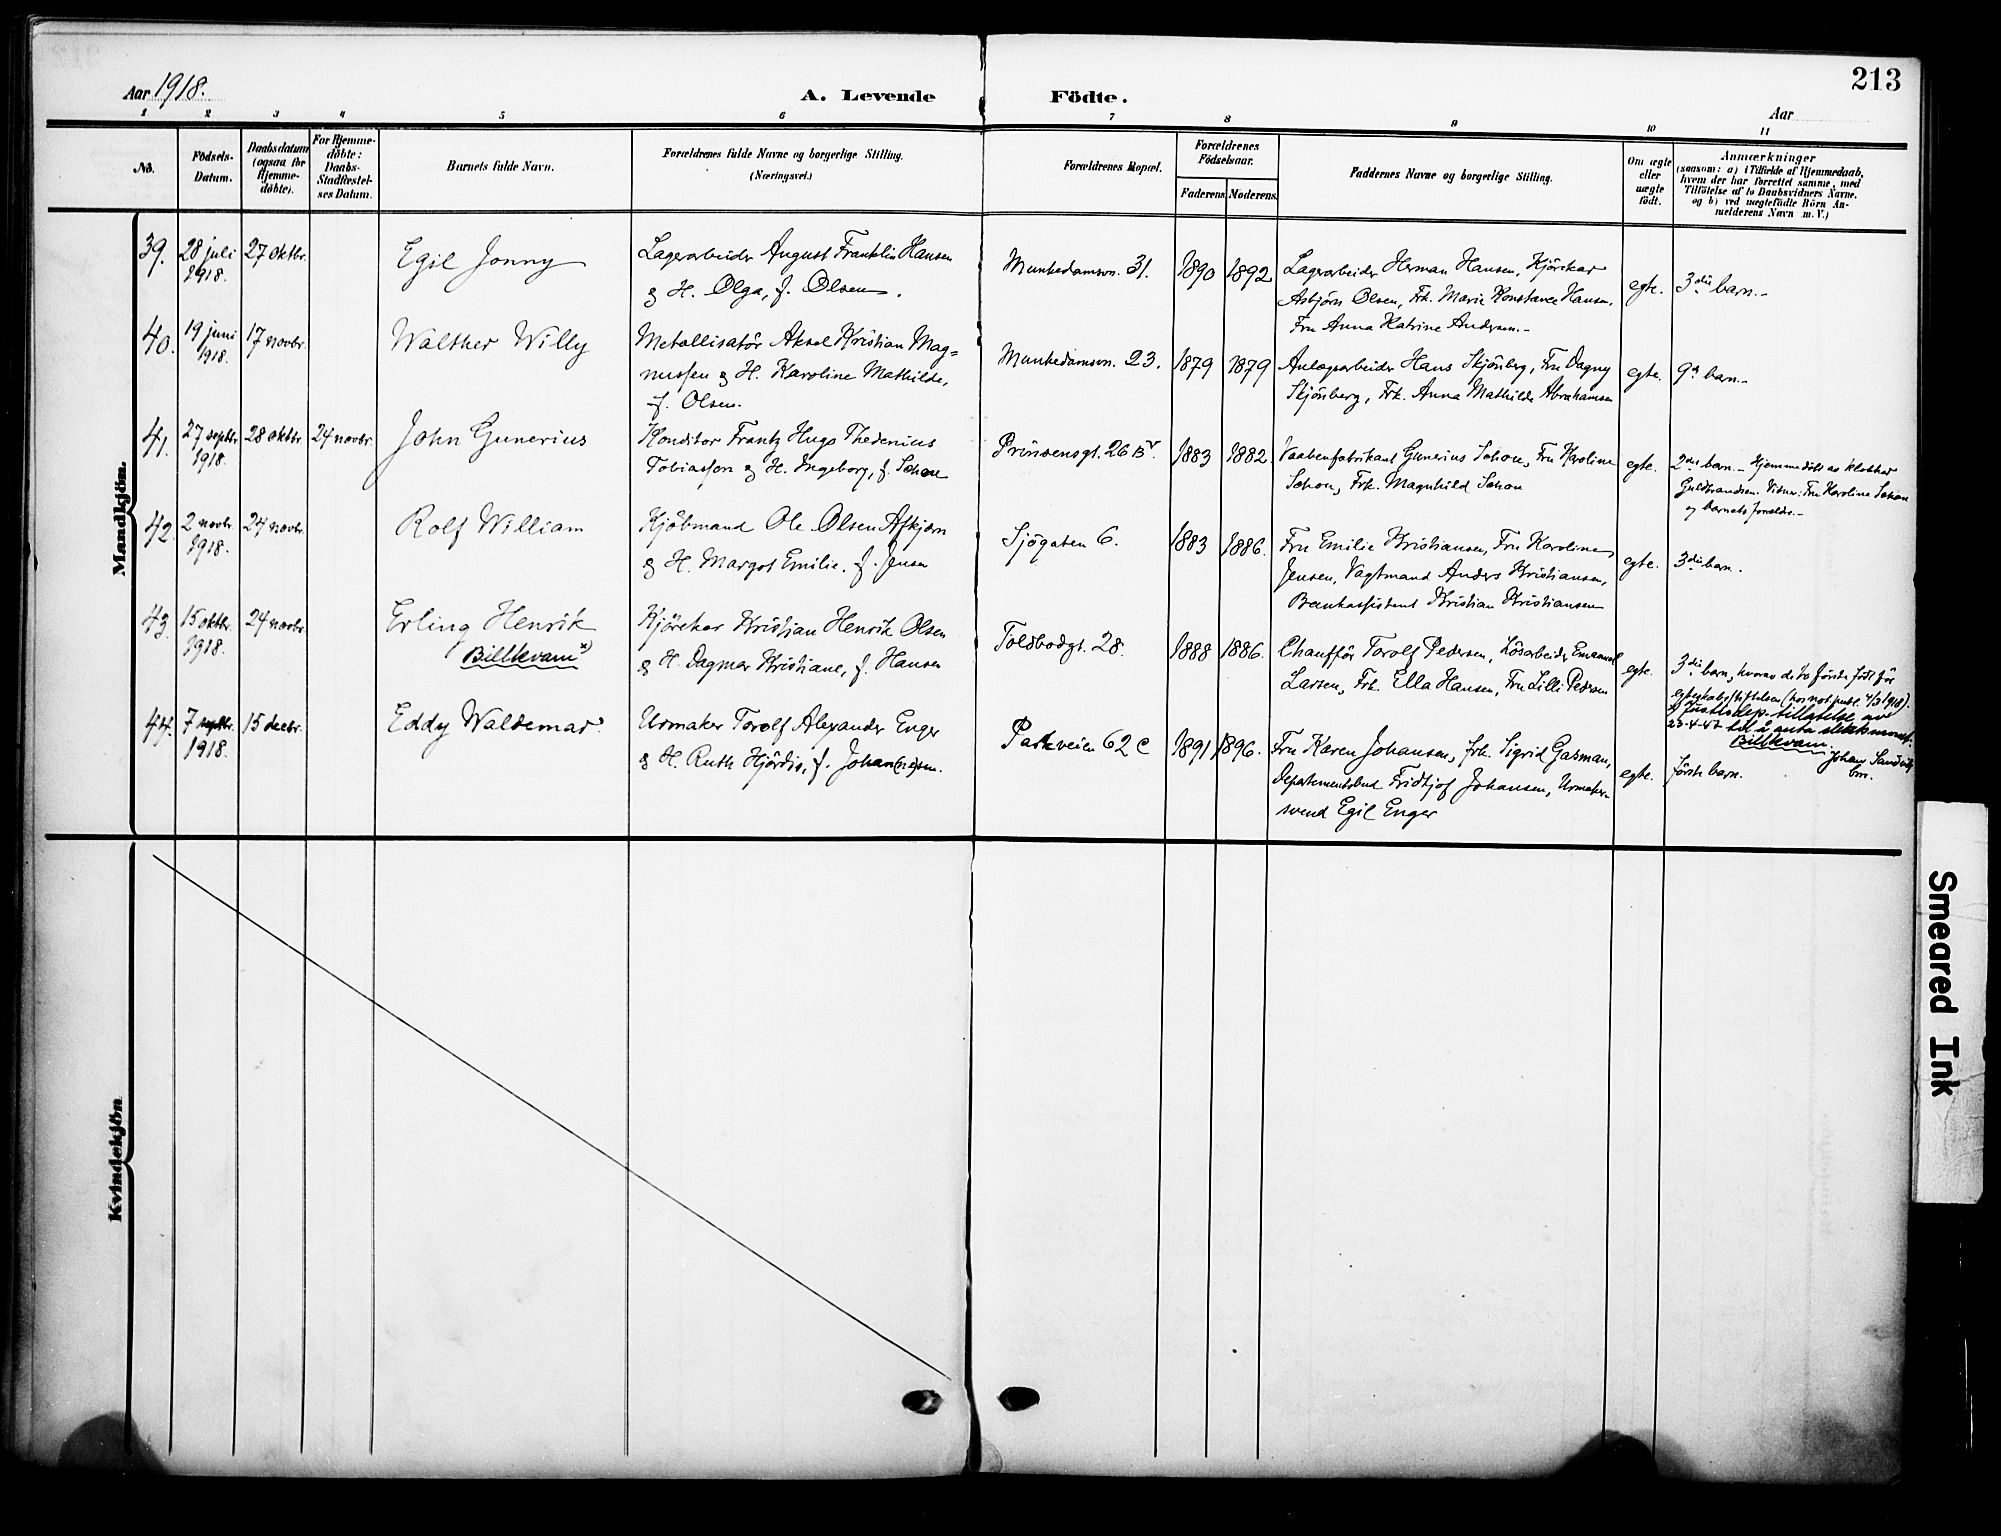 213
Aar 1918.
A. Levende Födte.
Aar
1 2 3 4 5 6 7 8 9 10 11
No.
Födsels-
Datum.
Daabsdatum
(ogsaa for
Hjemme-
döbte).
For Hjemme-
döbte:
Daabs-
Stadfæstel-
ses Datum.
Barnets fulde Navn.
Forældrenes fulde Navne og borgerlige Stilling.
(Næringsvei.)
Forældrenes Bopæl.
Forældrenes
Födselsaar.
Faderens. Moderens.
Faddernes Navne og borgerlige Stilling.
Om ægte
eller
uægte
födt.
Anmærkninger
(saasom: a) i Tilfælde af Hjemmedaab,
hvem der har forrettet samme, med
Tilföielse af to Daabsvidners Navne.
og b) ved uægtefödte Börn An-
melderens Navn m. V.)
Mandkjön.
39.
28 juli
1918.
27 oktbr.
Egil Jonny
Lagerarbeider August Franklin Hansen
& H. Olga, f. Olsen.
Munkedamsvn. 31.
1890
1892
Lagerarbeider Herman Hansen, Kjörekar
Asbjörn Olsen, Frk. Marie Konstance Hansen,
Fru Anna Katrine Andersen.-
egte.
3die barn.-
40.
19 juni
1918.
17 novbr.
Walther Willy
Metallisatör Aksel Kristian Mag=
nussen & H. Karoline Mathilde,
f. Olsen.
Munkedamsvn. 23.
1879
1879
Anlægsarbeider Hans Skjönberg, Fru Dagny
Skjönberg, Frk. Anna Mathilde Abrahamsen
egte.
9a barn.-
41.
27 septbr
1918.
28 oktbr
24 novbr.
John Gunerius
Konditor Frantz Hugo Thedenius
Tobiassen & H. Ingeborg, f. Schou
Prinsensgt. 26 B V.
1883
1882.
Vaabenfabrikant Gunerius Schou, Fru Karoline
Schou, Frk. Magnhild Schou
egte.
2det barn.- Hjemmedöbt av klokker
Guldbrandsen. Vitner: Fru Karoline Schou
og barnets forældre.-
42.
2 novbr.
1918.
24 novbr.
Rolf William
Kjöbmand Ole Olsen Askjem
& H. Margot Emilie, f. Jensen
Sjögaten 6.
1883
1886.
Fru Emilie Kristiansen, Fru Karoline
Jensen, Vagtmand Anders Kristiansen,
Bankassistent Kristian Kristiansen
egte.
3die barn.
43.
15 oktbr.
1918.
24 novbr
Erling Henrik
Billkvam x)
Kjörekar Kristian Henrik Olsen
& H. Dagmar Kristiane, f. Hansen
Toldbodgt. 28.
1888
1886.
Chaufför Torolf Pedersen, Lösarbeider Emanuel
Larsen, Frk. Ella Hansen, Fru Lilli Pedersen
egte.
3die barn, hvorav de to förste födt för
egteskabsstiftelsen
x) Justisdep. tillatelse av
23-4-47 til å anta slektsnavnet:
Billkvam.
Johan Sandvig
bm.
44.
7 septbr.
1918.
15 decbr.
Eddy Waldemar
Urmaker Torolf Alexander Enger
& H. Ruth Hjördis, f. Johan(ne)sen.
Parkveien 62 c
1891
1896.
Fru Karen Johansen, frk. Sigrid Gasman,
Departementsbud Fridtjof Johansen, Urmaker-
svend Egil Enger
egte.
förste barn.
Kvindekjön
Smeared Ink